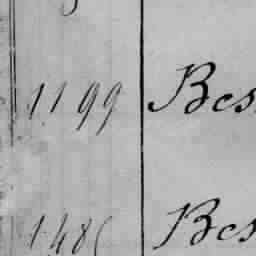 1199 Bes
148 Bes